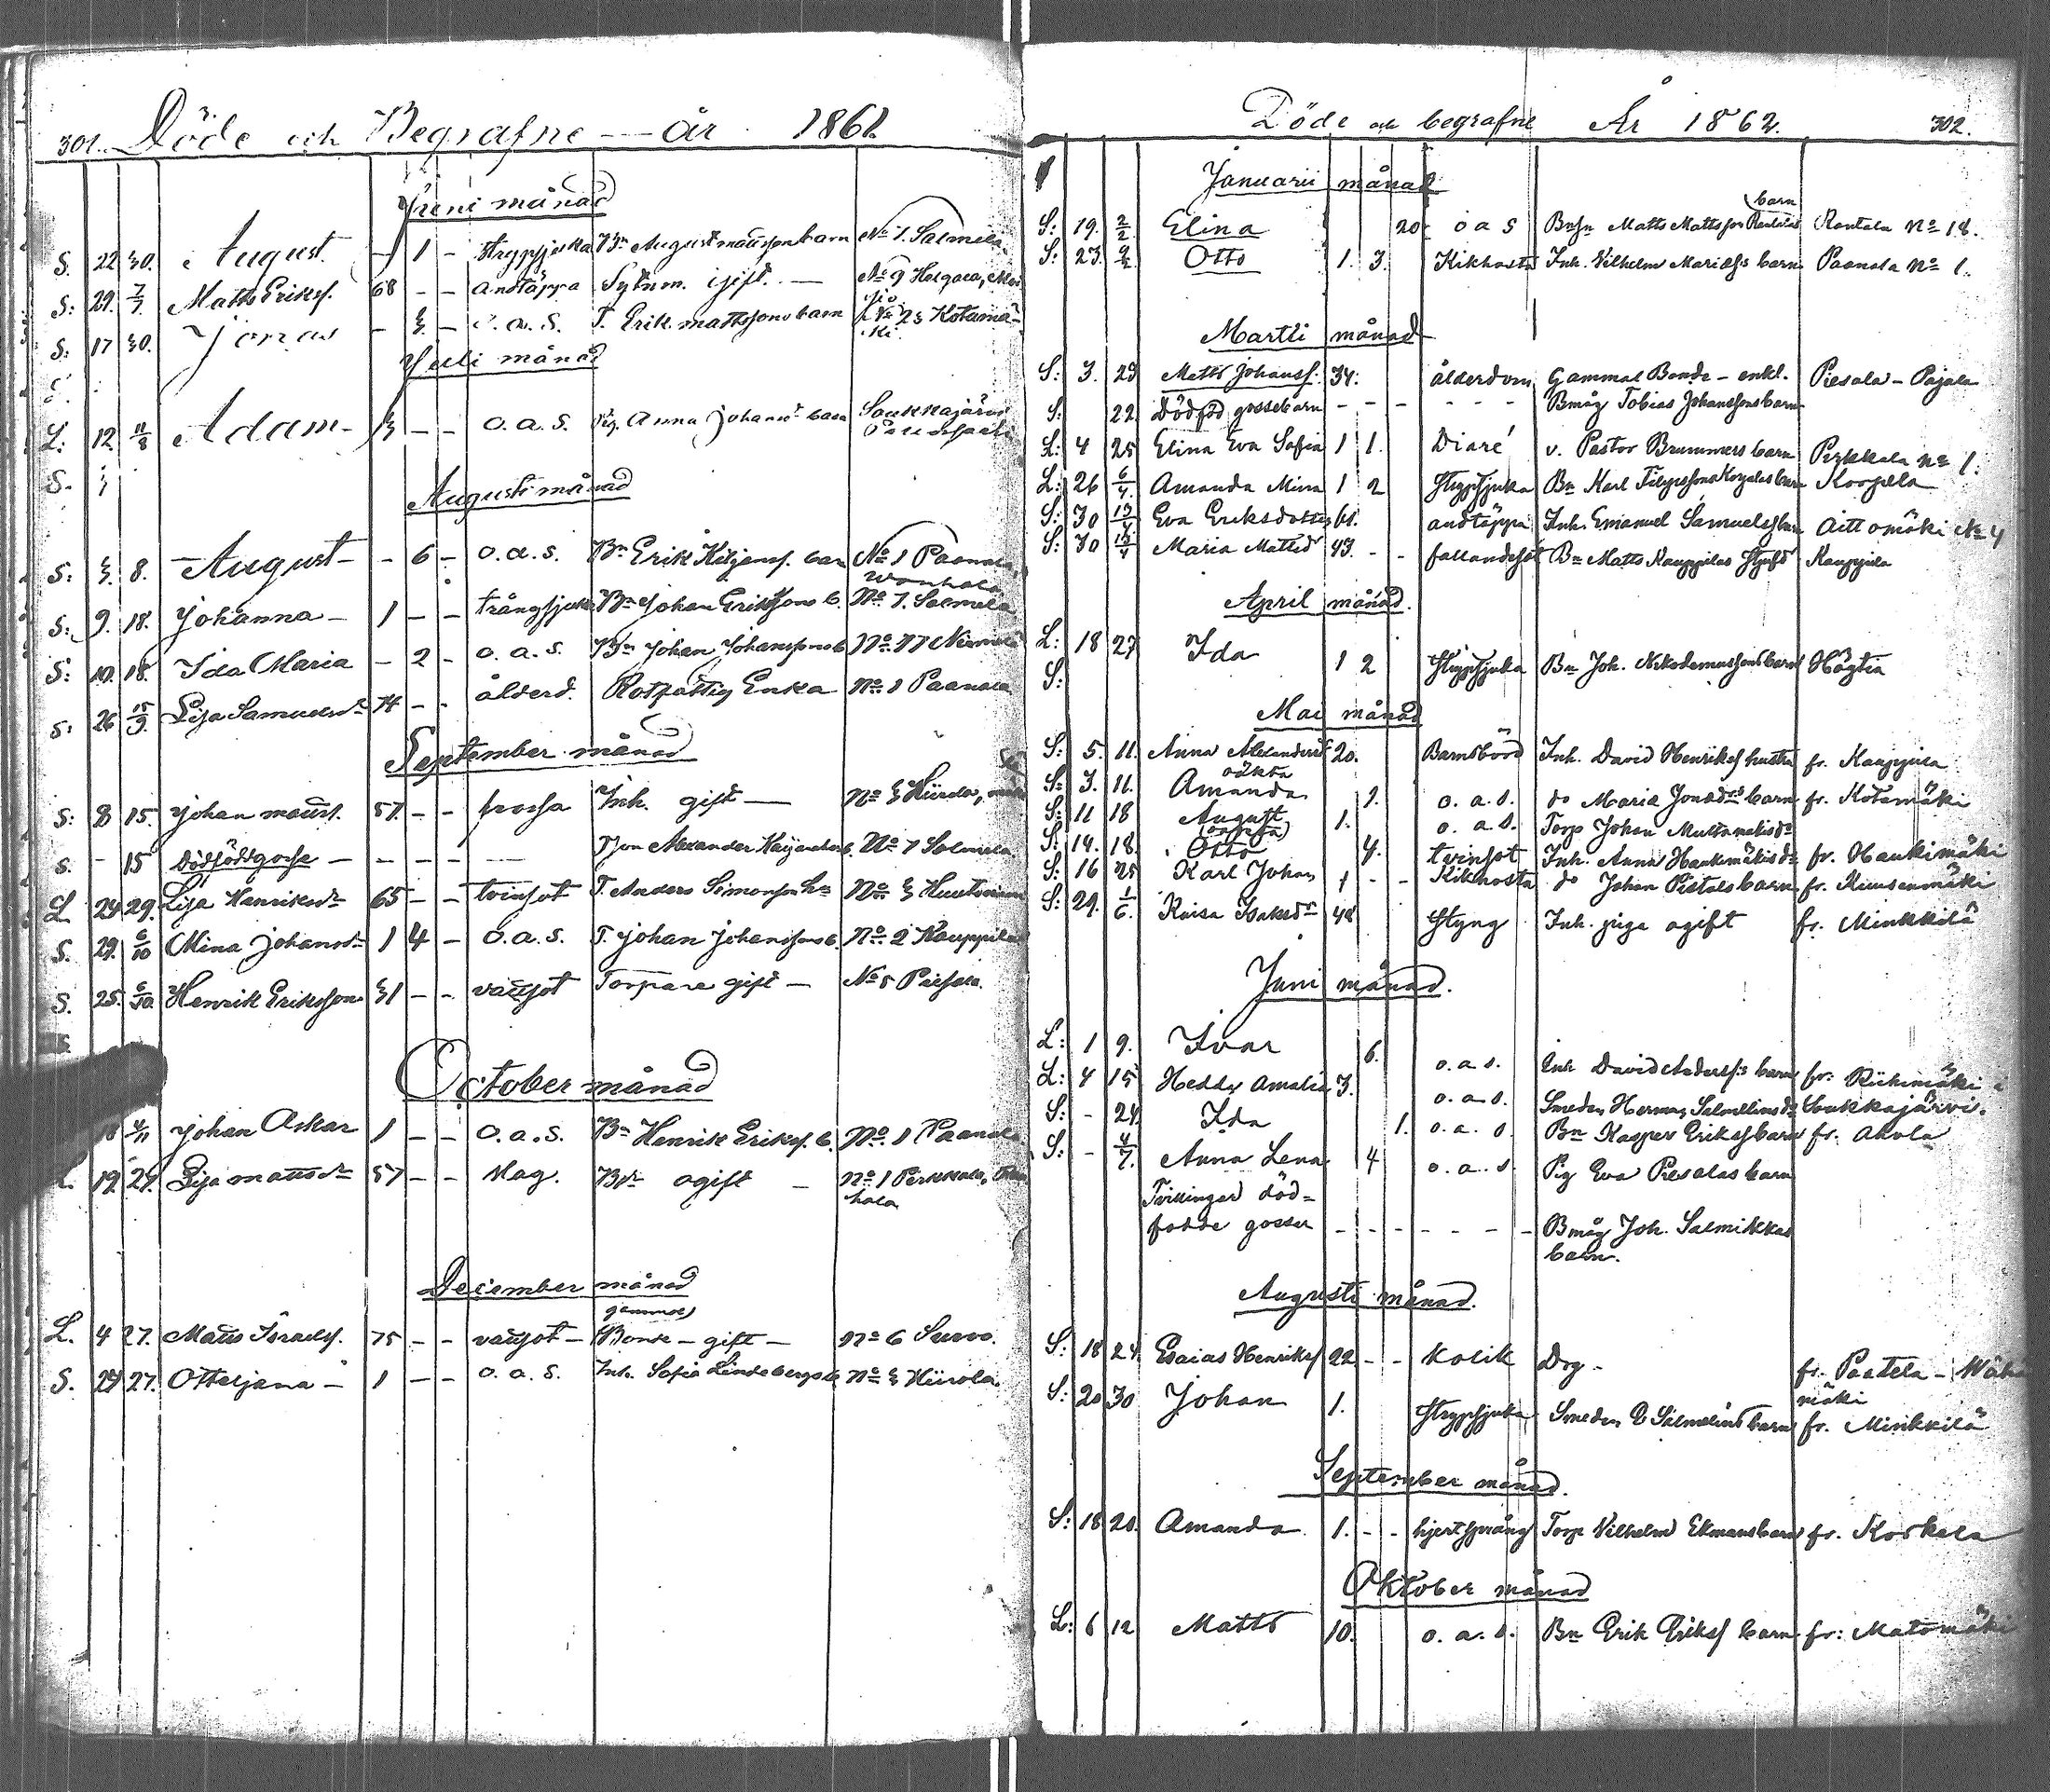 301. Döde och Begrafne — år 1861.
Juni månad
S. 22 30. August. – 1 – strypsjuka Bn August Mattsson barn No 7. Salmela
S: 29. 7/7. Matts Eriksf. 68 – – andtäppa Sytnm. gift. — No 9 Haapala,
S: 17 30. Jonas – 3 – o. a. S. T. Erik Mattssons barn No 23 Kotamä-
ki.
Juli månad
L. 12. 11/8 Adam – 3 – – o. a. S. Pig. Anna Johansdr barn Soukkajärvi
S.
Augusti månad
S: 3. 8. August – – 6 – o. a. s. Bn Erik Kitjansf. barn No 1 Paanala,
Wanhala
S: 9. 18. Johanna – 1 – – trångsjuka Bn Johan Erikssons b. No 7. Salmela
S: 10. 18. Ida Maria – 2 – o. a. s. Bn Johan Johanssons b No 17 Niemelä
S: 26 15/9. Lisa Samuelsdr 74 – – ålderd. Rotfattig Enka No 1 Paanala
September månad
S: 8 15. Johan Mattsf. 57. – – frossa Inh. gift — No 3 Hiirola,
S. – 15 Dödföddgosse – – – – — Bn Alexander b. No 7 Salmela
L 24 29. Lisa Henriksdr 65 – – tvinsot T. Anders Simonson hu No 3
S. 29. 6/10 Mina Johansdr 1 4 – o. a. s. T. Johan Johanssons b. No 2 Kauppila
S. 25. 6/10 Henrik Eriksson 31 – – vattsot Torpare gift – No 5 Piesala.
October månad
4/11 Johan Askar 1 – – o. a. s. Bn Henrik Eriksf. b. No 1 Paanala
19. 27. Lisa Mattsdr 57 – – slag. Bdr ogift – No 1 Perkkala,
hala
December månad
gammal
L. 4 27. Matts Israelsf. 75 – – vattsot – Bonde – gift – No 6 Survo.
S. 24 27. Otteljana – 1 – – o. a. s. Inh. Sofia Lindebergs b. No 3 Hiirola
Döde och begrafne År 1862. 302.
Januarii månad
barn
S: 19. 2/2. Elina 20 o a s Bnsn Matts Mattsson Rantalas Rantala No 18.
S: 23. 9/2. Otto 1. 3. Kikhosta Inh. Vilhelm Mariæs barn Paanala No 1.
Martii månad
S: 3. 23 Matts Johansf. 74: ålderdom Gammal Bonde – enkl. Piesala – Pajala
S: 22. Dödföd gossebarn – – – – – – Bmåg Tobias Johanssons barn
L: 4 25 Elina Eva Sofia 1 1. Diaré v. Pastor Brummers barn Perkkala No 1.
L: 26 6/4. Amanda Mina 1 2 Strypsjuka Bn Karl Filipssons Korpelas barn Korpela
S: 30 13/4 Eva Eriksdotter 61. andtäppa Inh. Emanuel Samuelss hu Aittomäki No 4
S: 30 13/4 Maria Mattsd 43. – – fallandesot Bn Matts Kauppilas Kauppila
April månad.
L: 18 27 Ida 1 2 Strypsjuka Bn Joh. Nikodemussons barn Högtia
S:
Maj månad
S: 5. 11. Anna Alexandersd 20. Barnsbörd Inh. David Henrikss hustru fr. Kauppila
oäkta
S: 3. 11. Amanda 9. o. a. s. do Maria Jonædrs barn fr. Kotamäki
S: 11 18 August 1. o. a. s. Torp Johan Multamäkis do
S: 14. 18. Otto 4. tvinsot Inh. Anna Haukimäkis do fr. Haukimäki
S: 16 25 Karl Johan 1 – – Kikhosta do Johan Pistols barn fr. Kuusenmäki
S: 29. 1/6. Kaisa Isaksdr 48 styng Inh. piga ogift fr. Minkkilä
Juni månad.
L: 1 9. Ivar 6. o. a. s. Inh David Anderss: barn fr: Riihimäki
L: 4 15 Hedda Amalia 3. o. a. s. Smeden Herman Salmelins do Soukkajärvi.
S: – 24. Ida 1. o. a. s. Bn Kasper Erikss barn fr. Ahola
S: – 4/7. Anna Lena 4 o. a. s. Pig Eva Piesalas barn
Tvillingar död=
födde gossar – – – – – – Bmåg Joh. Salmikkas
barn.
Augusti månad.
S: 18 24. Esaias Henriksf 22 – – Kolik Drg – fr. Paatela –
mäki
S: 20 30 Johan 1. Strypsjuka Smeden D Salmelins barn fr. Minkkilä
September månad.
S: 18 20. Amanda 1. – – hjertsprång Torp Vilhelm Ekmans barn fr. Korkela
Oktober månad
L: 6 12 Matts 10. o. a. s. Bn Erik Erikss barn fr: Matomäki